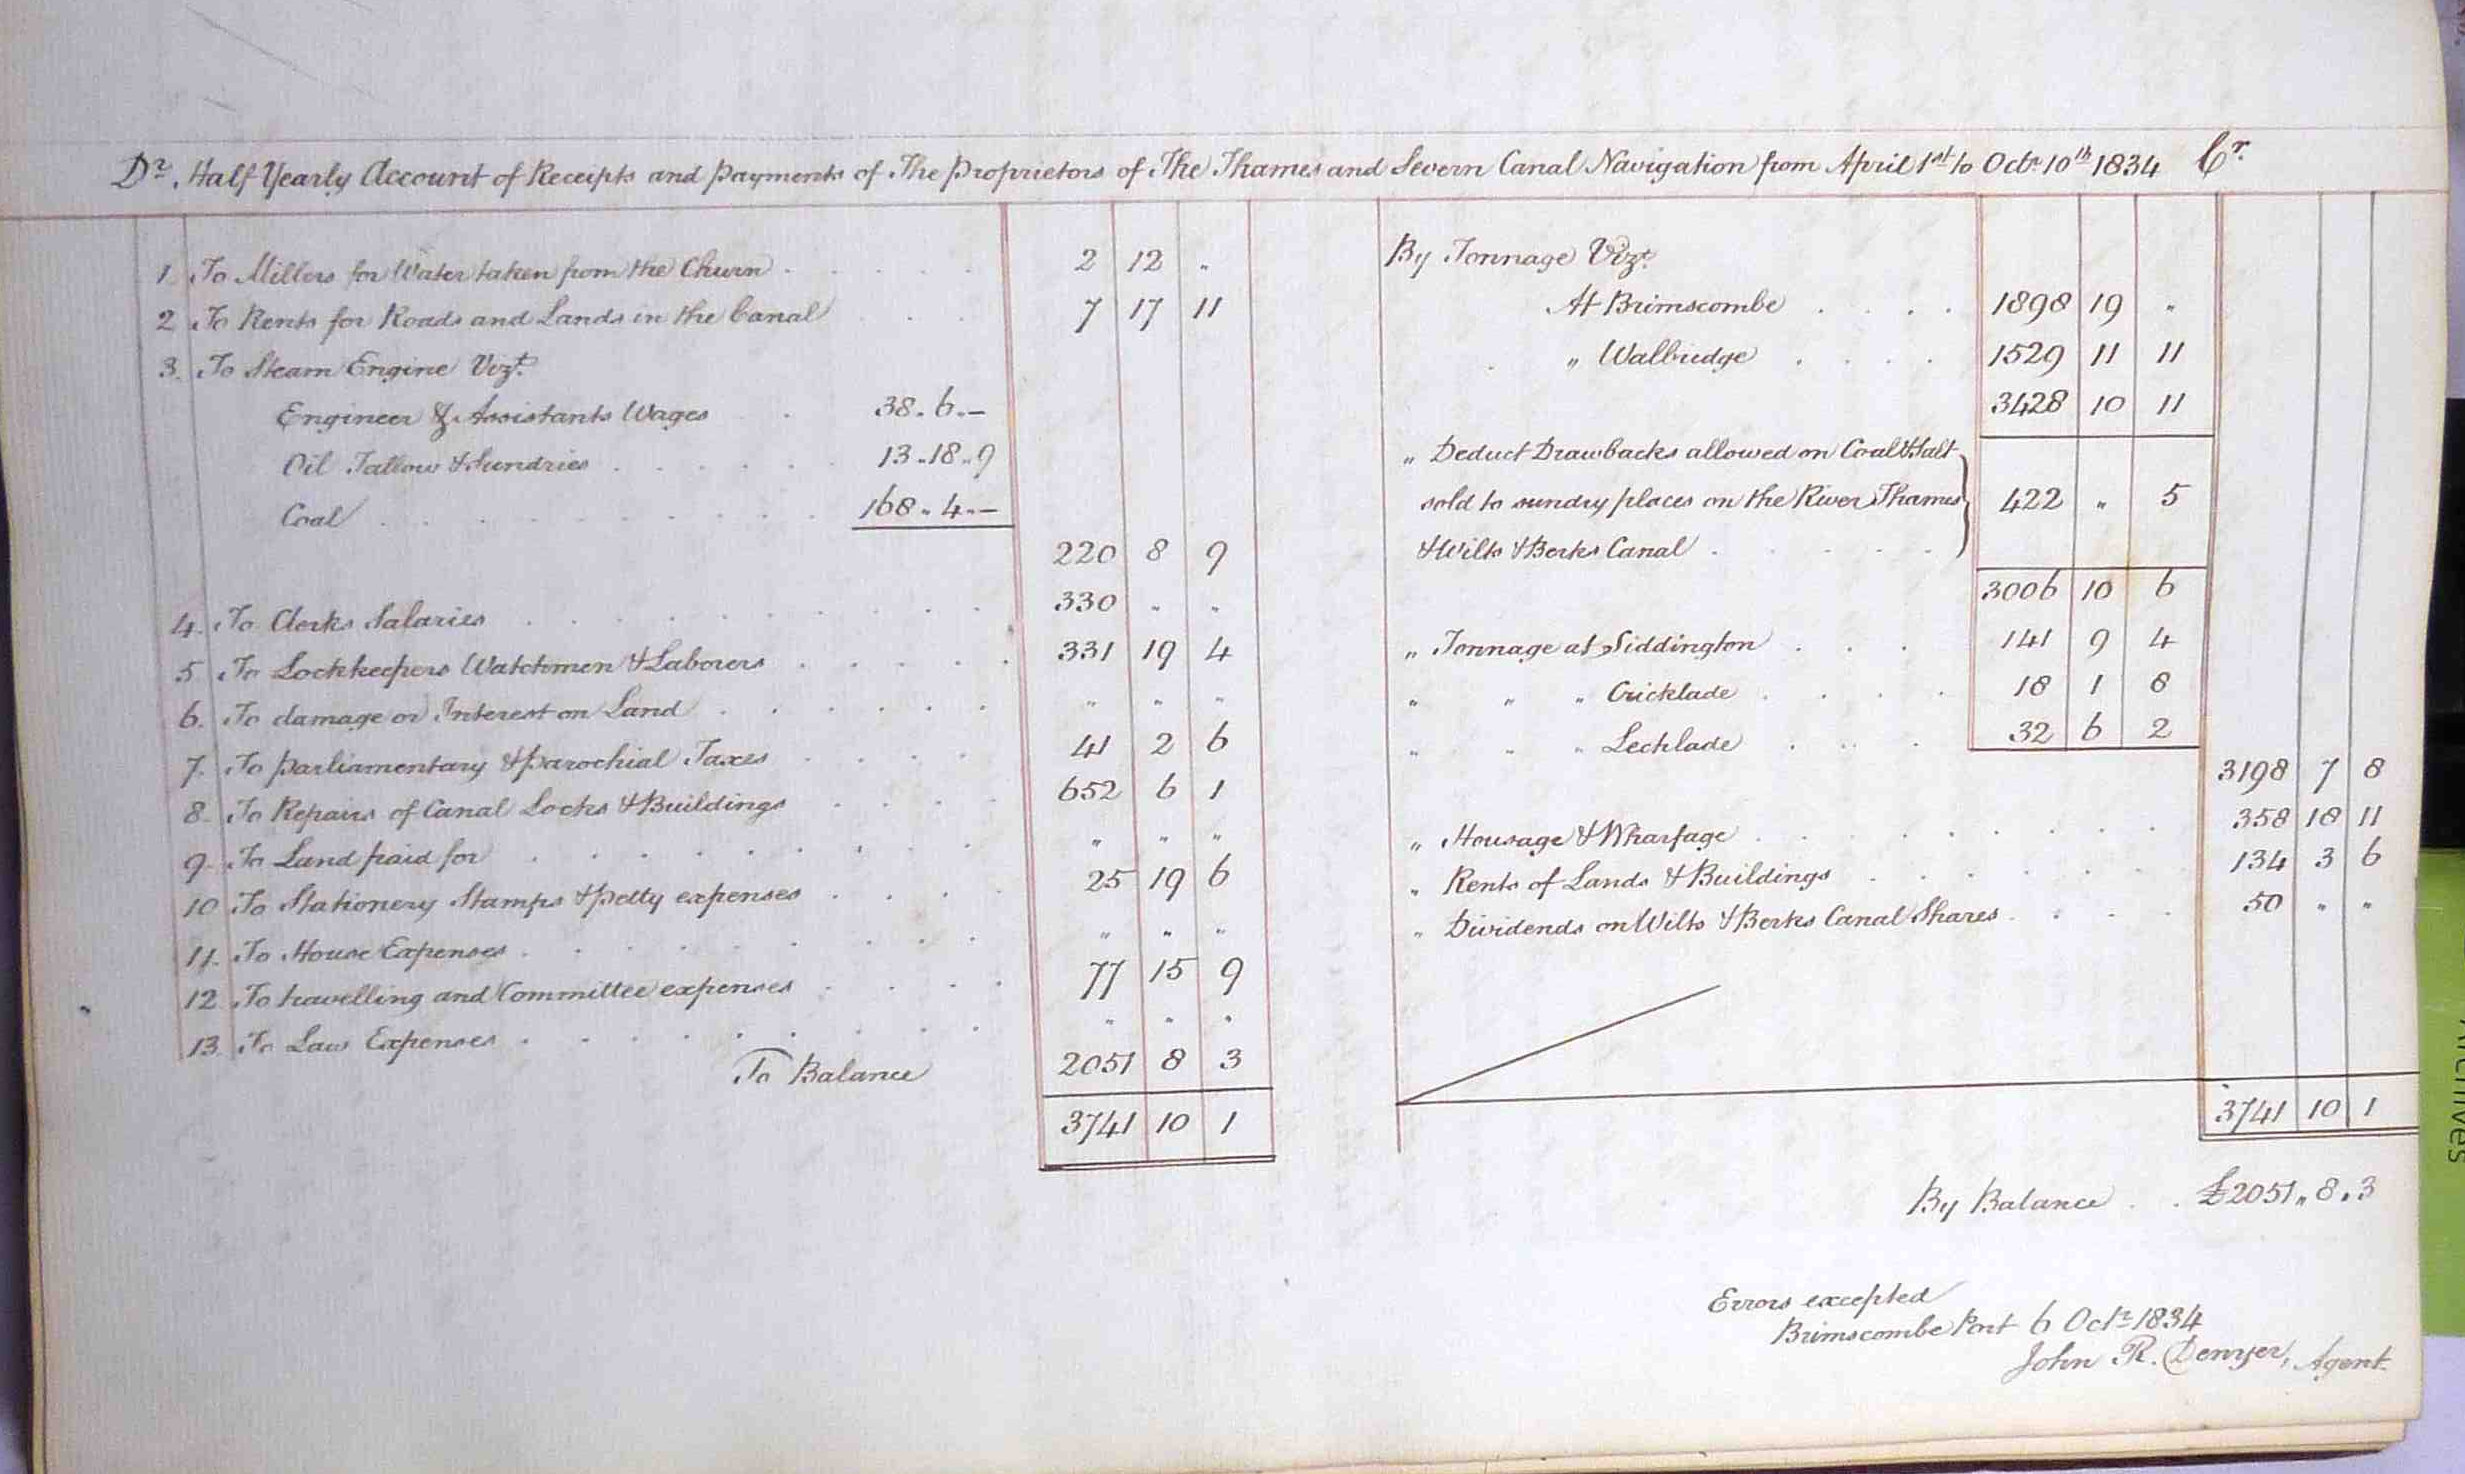 Dr. Half Yearly Account of Receipts and Payments of The Proprietors of The Thames and Severn Canal Navigation from April 1st to Octr 10th 1834 Cr.
1. To Millers for Water taken from the Churn . . . . . 2 12 "
2 To Rents for Roads and Lands in the Canal . . . 7 17 11
3. To Steam Engine Vizt.
Engineer & Assistants Wages . 38..6..–
Oil Tallow & Sundries . . . . . . 13..18..9
Coal . . . . . . . . . . 168..4..–
220 8 9
4. To Clerks Salaries . . . . . . . . . 330 " "
5 To Lockkeepers Watchmen & Laborers . . . . . 331 19 4
6. To damage or Interest on Land . . . . . . " " "
7. To Parliamentary & Parochial Taxes . . . . 41 2 6
8. To Repairs of Canal Locks & Buildings . . . . 652 6 1
9. To Land paid for . . . . . . . . . " " "
10 To Stationery Stamps & Petty expenses . . . . 25 19 6
11. To House Expenses . . . . . . . . . " " "
12 To travelling and Committee expenses . . . . 77 15 9
13. To Law Expenses . . . . . . . . . " " "
To Balance 2051 8 3
3741 10 1
By Tonnage Vizt.
At Brimscombe . . . . 1898 19 "
" Walbridge . . . . 1529 11 11
3428 10 11
" Deduct Drawbacks allowed on Coal & Salt
sold to sundry places on the River Thames 422 " 5
& Wilts & Berks Canal . . . . .
3006 10 6
" Tonnage at Siddington . . . 141 9 4
" " " Cricklade . . . . 18 1 8
" " " Lechlade . . . 32 6 2
3198 7 8
" Housage & Wharfage . . . . . . . . . 358 18 11
" Rents of Lands & Buildings . . . . . . 134 3 6
" Dividends on Wilts & Berks Canal Shares . . . . 50 " "
3741 10 1
By Balance . . £2051..8.3
Errors excepted
Brimscombe Port 6 Octr 1834
John R. Denyer, Agent.
Archives